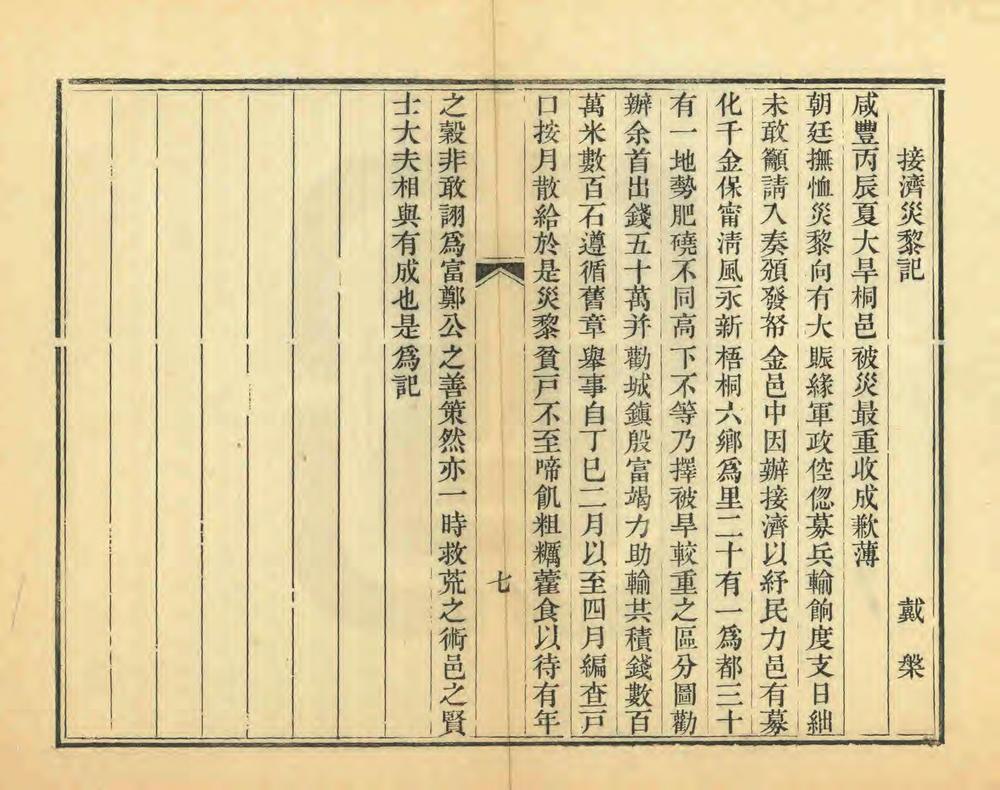 接濟災黎記 戴槃
咸豐丙辰夏大旱桐邑被災最重收成歉薄
朝廷撫恤災黎向有大賑緣軍政倥偬募兵輸餉度支日絀
未敢籲請入奏頒發帑金邑中因辦接濟以紓民力邑有募
化千金保甯淸風永新梧桐六鄉爲里二十有一爲都三十
有一地勢肥磽不同高下不等乃擇被旱較重之區分圖勸
辦余首出錢五十萬并勸城鎮殷富竭力助輸共積錢數百
萬米數百石遵循舊章舉事自丁巳二月以至四月編查戸
口按月散給於是災黎貧戸不至啼飢粗糲藿食以待有年
七
之穀非敢詡爲富鄭公之善策然亦一時救荒之術邑之賢
士大夫相與有成也是爲記